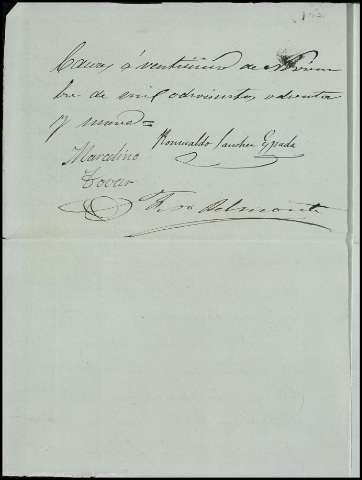 á veintiuno de Noviem
bre de mil ochocientos ochenta
y nueve=
Romualdo Sanchez Espada
Marcelino
Tovar
Belmonte